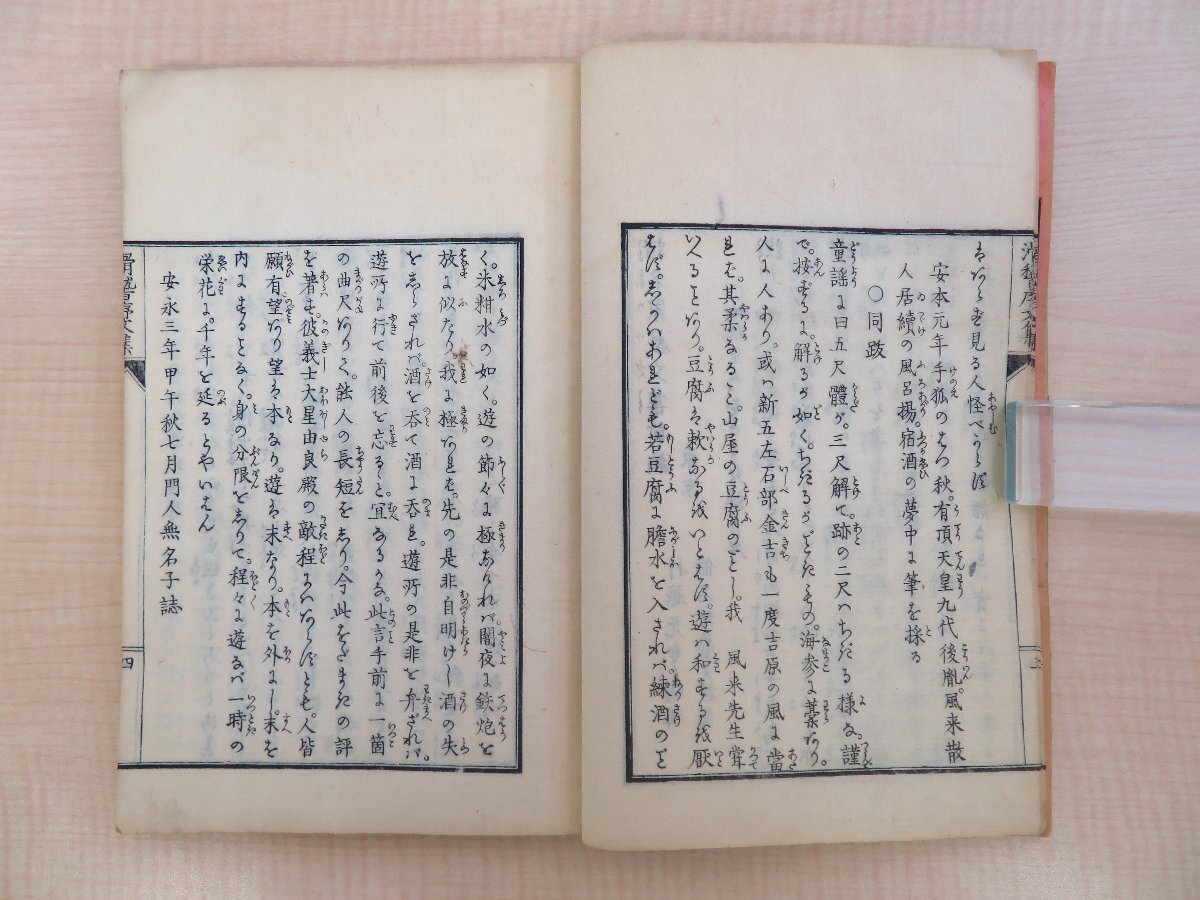 見る人怪べからず
安本元年手狐のはつ秋。有頂天皇九代後胤。風来散
人居續の風呂揚。宿酒の夢中に筆を採る
〇同跋
童謡に曰五尺體が。三尺解て。跡の二尺はちだる様な。謹
で。按ずるに。解るが如く。ちだるがごときもの。海参に藁あり。
人に人あり。或は新五左石部金吉も一度吉原の風に當
れば。其柔なること。山屋の豆腐のごとし。我 風来先生嘗
いへることあり。豆腐は軟なるを いとはず。遊は和するを 厭
はず。しかはあれども。若豆腐に膽水を入ざれば。練酒のごと
く。氷粧水の如し。遊の節々に極なければ。闇夜に鉄炮を
放に似たり。我に極あれば。先の是非自明けし酒の失
をしらざれば。酒を呑て酒に呑れ。遊所の是非を弁ざれば。
遊所に行て前後を忘ると。冝なるかな。此言手前に一箇
の曲尺ありて。能人の長短をしり。今此をだまきの評
を著す。彼義士大星由良殿の敵程にはあらずとも。人皆
願有望あり望は本なり。遊は末なり。本を外にし。末を
内にすることなく。身の分限をしりて。程々に遊なば一時の
栄花に。千年を延るとやいはん
安永三年甲午秋七月門人無名子誌
滑稽序文集
四
上